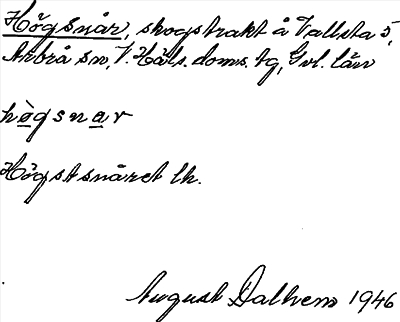 Högsnår, skogstrakt å Vallsta 5,
Arbrå sn, V. Häls. doms. tg, Gvl. län
hògsnar
Högstsnåret lk.
August Dalhem 1946